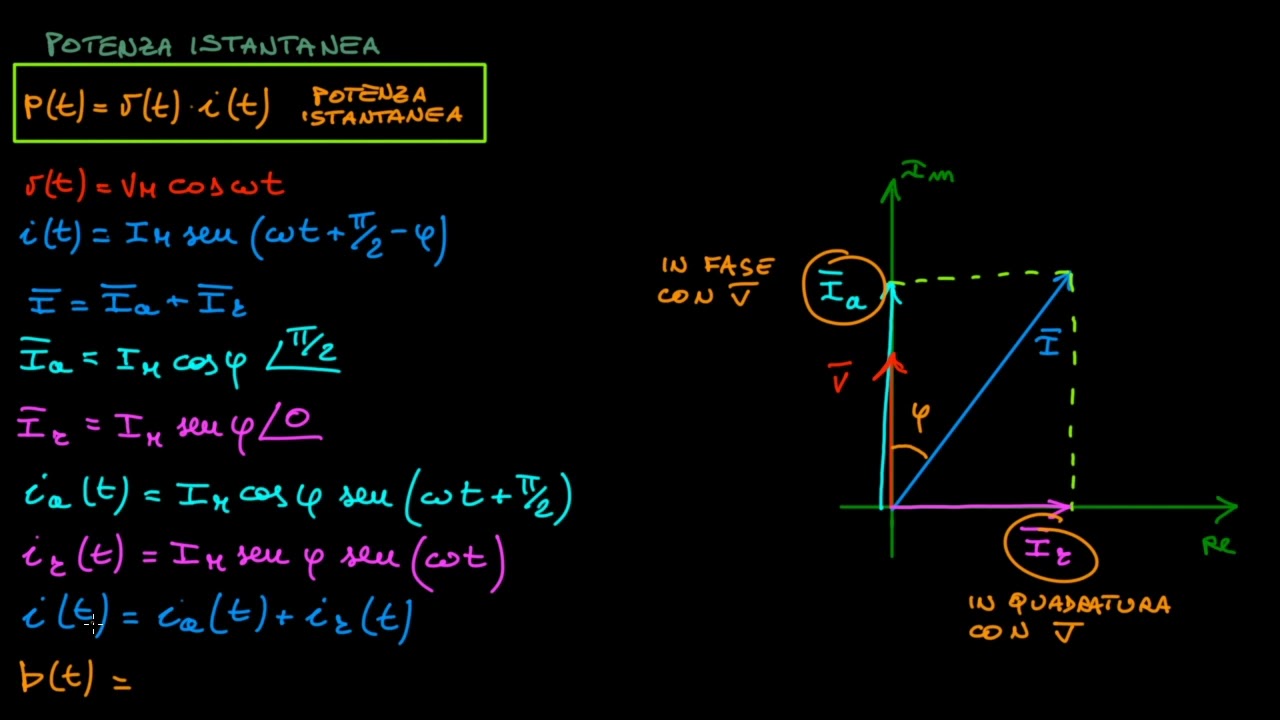 POTENZA ISTANTANEA
p(t) = v(t) · i(t) POTENZA ISTANTANEA
v(t) = V_M cos ωt
i(t) = I_M sen (ωt + π/2 - φ)
I̅ = I̅_a + I̅_r
I̅_a = I_M cos φ ∠π/2
I̅_r = I_M sen φ ∠0
i_a(t) = I_M cos φ sen (ωt + π/2)
i_r(t) = I_M sen φ sen (ωt)
i(t) = i_a(t) + i_r(t)
p(t) =
Im
IN FASE
CON V̅
I̅_a
I̅
V̅
φ
I̅_r
Re
IN QUADRATURA
CON V̅